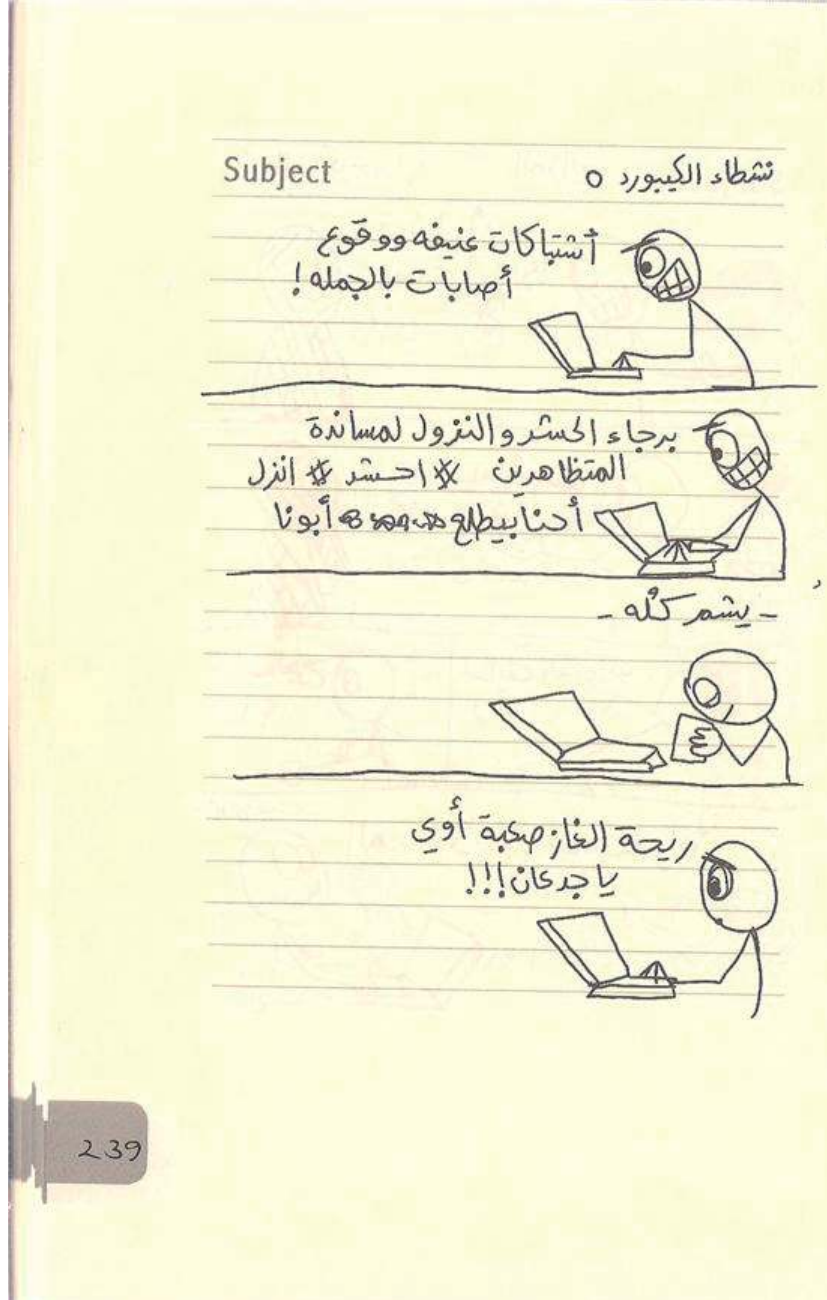 Subject
نشطاء الكيبورد
أشتباكات عنيفه ووقوع
أصابات بالجمله !
برجاء الحشد و النزول لمساندة
المتظاهرين # احشد # انزل
أحنا بيطلع أبونا
- يشمر كمُّه -
ريحة الغاز صعبة أوي
يا جدعان !!!
239